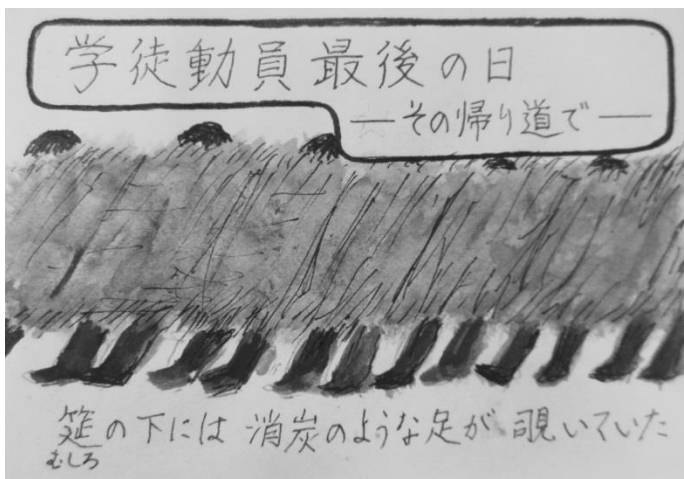 学徒動員最後の日
―その帰り道で―
筵の下には 消炭のような足が 覗いていた
むしろ